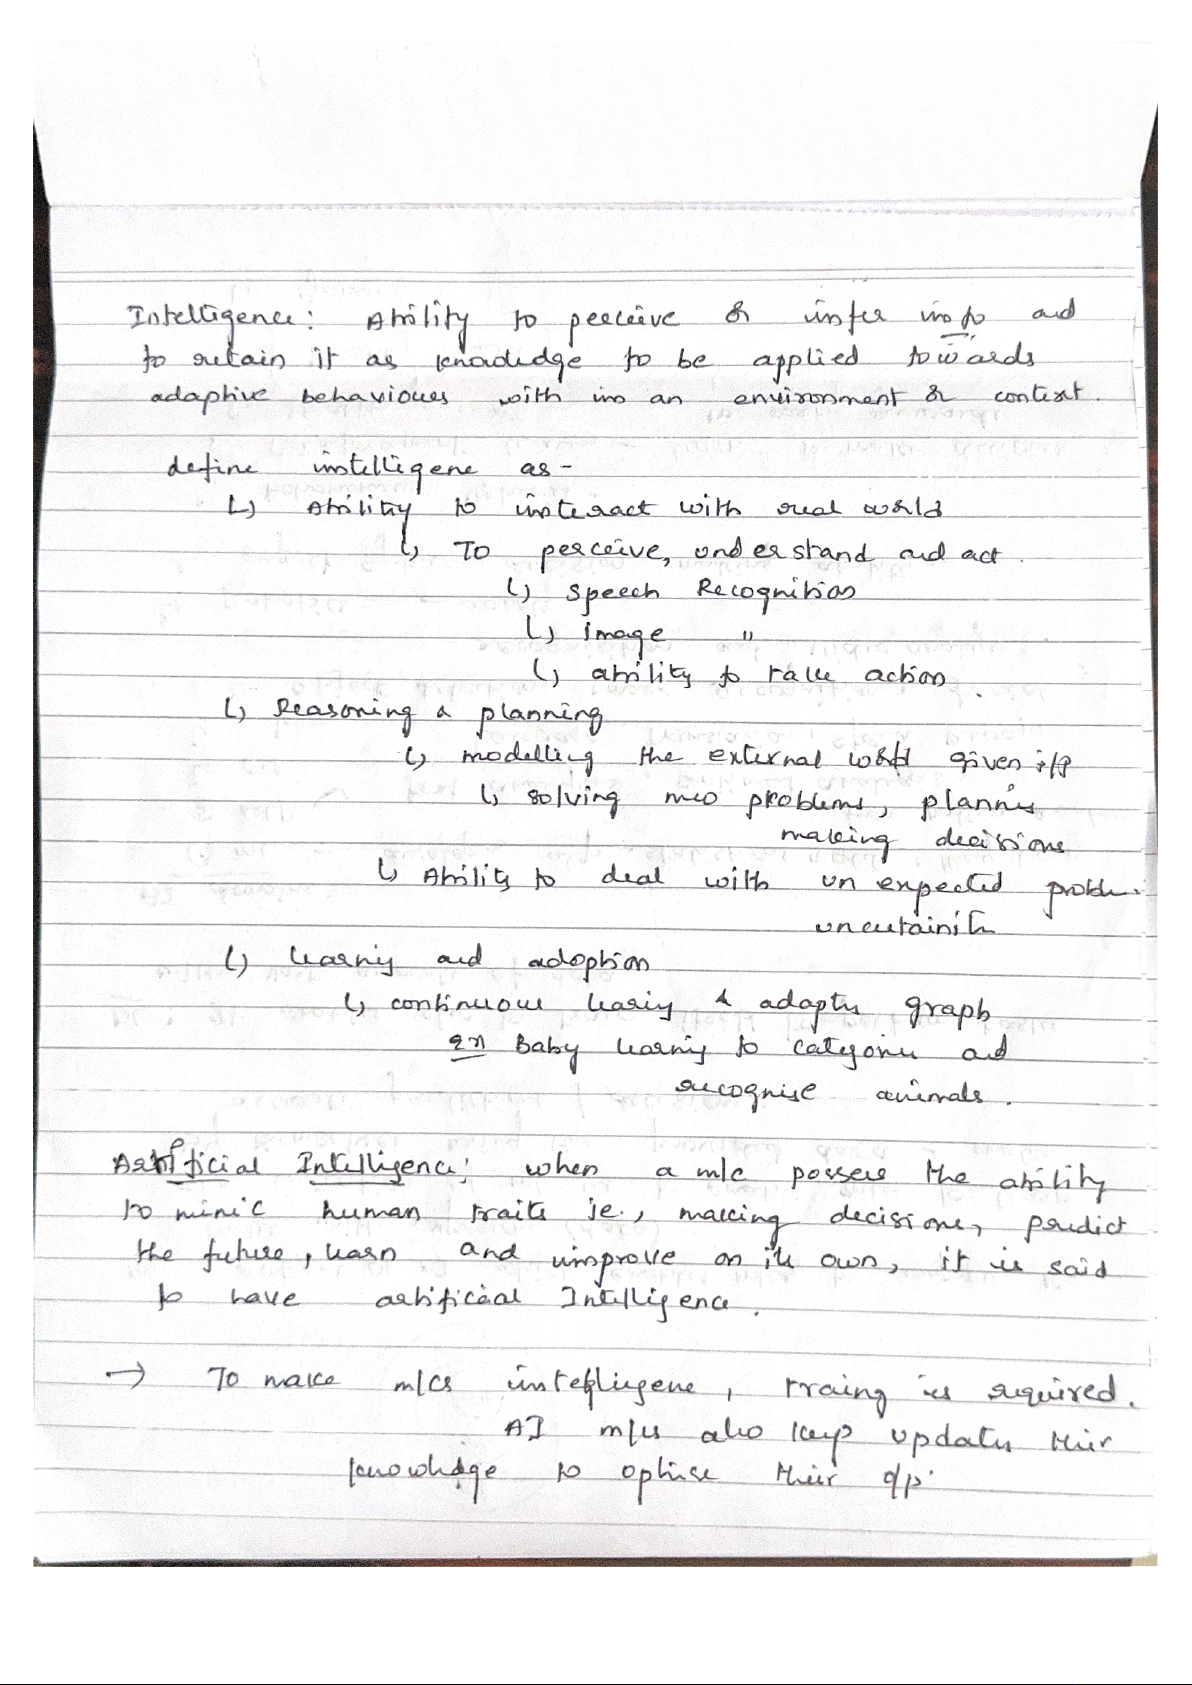 Intelligence: Ability to perceive & infer info and
to retain it as knowledge to be applied towards
adaptive behaviours with in an environment & context.
define intelligene as -
↳ Ability to interact with real world
↳ To perceive, understand and act.
↳ speech Recognition
↳ image "
↳ ability to take action.
↳ Reasoning & planning
↳ modelling the external world given i/p
↳ solving new problems, planning
making decisions
↳ Ability to deal with un expected problem.
↳ learning and adoption
↳ continuous learning & adapts graph
ex Baby learning to categorise and
recognise animals.
Artificial Intelligence: when a m/c possess the ability
to mimic human traits ie., making decisions, predict
the future, learn and improve on its own, it is said
to have artificial Intelligence.
→ To make m/cs intelligene, traing is required.
AI m/cs also keep updates their
knowledge to optimise their o/p.